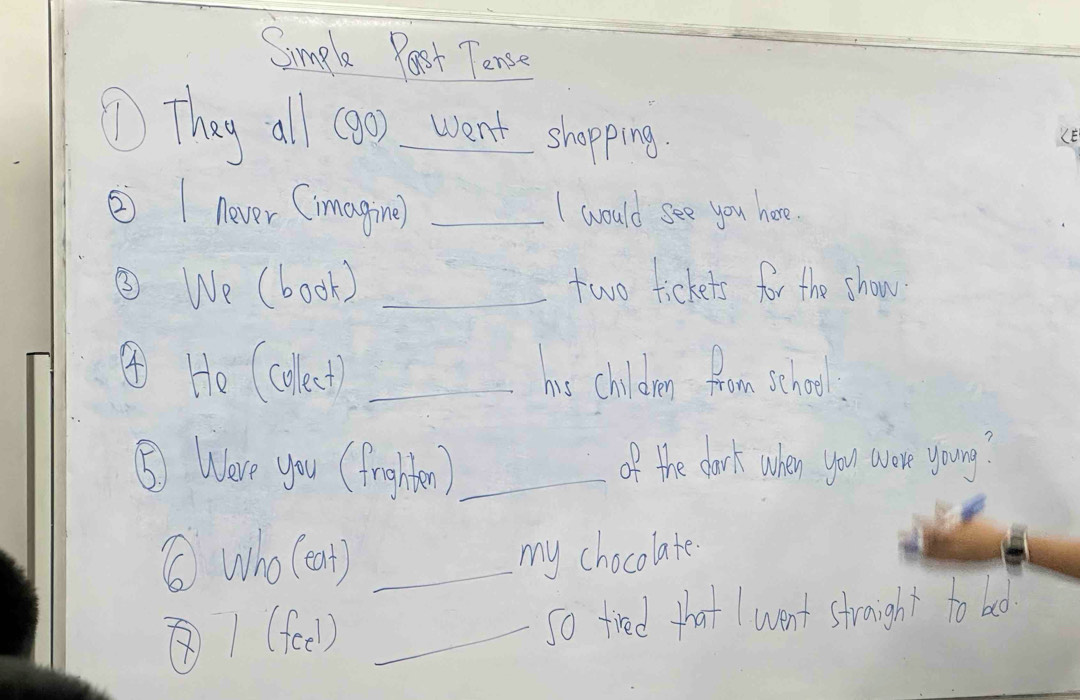 Simple Past Tense
① They all (go) went shopping.
② I never (imagine) ______ I would see you here.
③ We (book) ______ two tickets for the show.
④ He (collect) ______ his children from school.
⑤ Were you (frighten) ______ of the dark when you were young?
⑥ Who (eat) ______ my chocolate.
⑦ I (feel) ______ so tired that I went straight to bed.